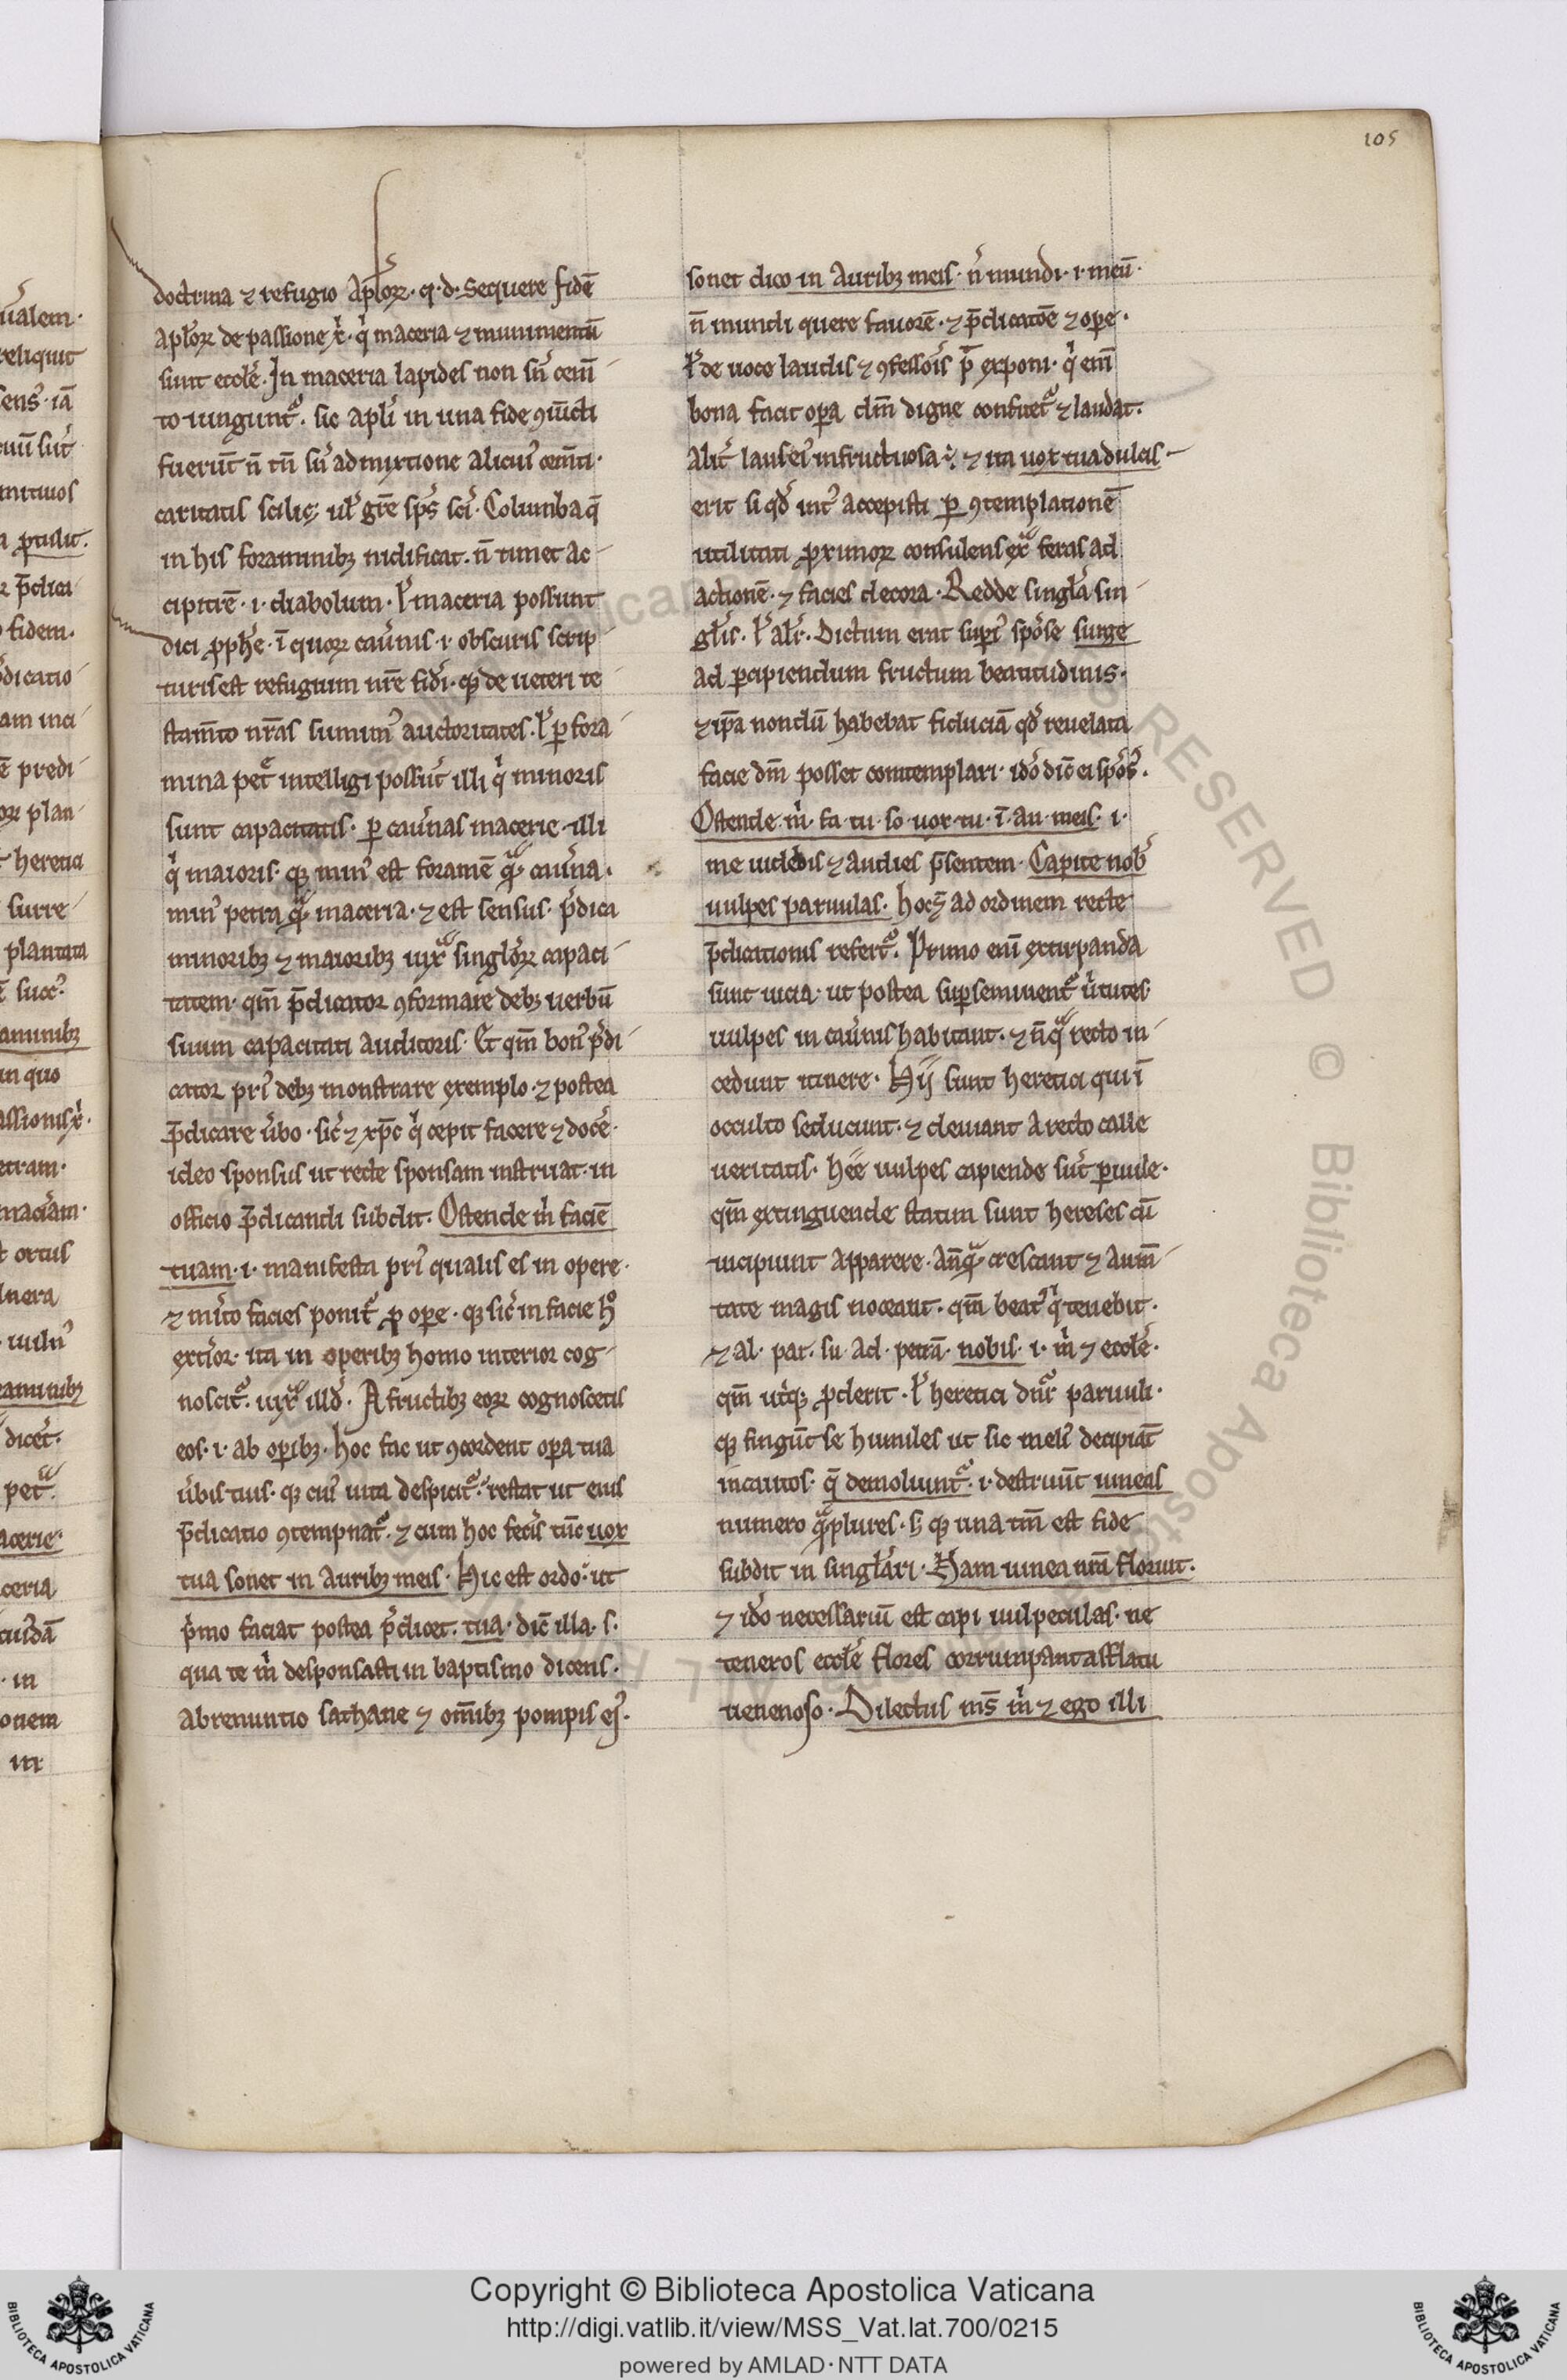 105
doctrina ⁊ refugio apl̓oꝝ · q · d · Sequere fidē
apl̓oꝝ de passione xͥ · qͥ maceria ⁊ munimentū
sunt eccl̓e · In maceria lapides non sn̄ cem̄
to iungunt᷑ · sic apl̓i in una fide ꝯiūcti
fuerūt n̄ tn̄ sn̄ admixtione alicuiꝰ cem̄ti ·
caritatis scilicꝫ ul̓ gr̄e sp̄s sc̄i · Columba q̄
in his foraminibꝫ nidificat · n̄ timet ac
cipitrē · i · diabolum · l̓ maceria possunt
dici ꝓph̓e · ī quoꝝ cau̓nis · i · obscuris scrip
turis est refugium nr̄e fidei · qꝫ de ueteri te
stam̄to nr̄as sumimꝰ auctoritates · l̓ ꝑ fora
mina petͤ intelligi possūt illi qͥ minoris
sunt capacitatis · ꝑ cau̓nas macerie · illi
qͥ maioris · qꝫ minꝰ est foramē qͣ̄ cau̓na ·
minꝰ petra qͣ̄ maceria · ⁊ est sensus · p̄dica
minoribꝫ ⁊ maioribꝫ iuxͣ singl̓oꝝ capaci
tatem · qm̄ p̄dicator ꝯformare debꝫ uerbū
suum capacitati auditoris · Et qm̄ bonꝰ p̄di
cator priꝰ debꝫ monstrare exemplo · ⁊ postea
p̄dicare u̓bo · sic̄ ⁊ xp̄c qͥ cepit facere ⁊ doce̓ ·
ideo sponsus ut recte sponsam instruat · in
officio p̄dicandi subdit · Ostende m̊ faciē
tuam · i · manifesta priꝰ qualis es in opere ·
⁊ mi̓to facies ponit᷑ ꝓ oꝑe · qꝫ sic̄ in facie hͦ
exti̓or · ita in operibꝫ homo interior cog
noscit᷑ · iuxͣ illd̓ · A fructibꝫ eoꝝ cognoscetis
eos · i · ab oꝑibꝫ · hoc fac ut ꝯcordent oꝑa tua
u̓bis tuis · qꝫ cuiꝰ uita despicit᷑ · restat ut eius
p̄dicatio ꝯtempnat᷑ · ⁊ cum hoc feci̓s tūc uox
tua sonet in auribꝫ meis · Hic est ordo · ut
pͥmo faciat postea p̄dicet · tua · dic̄ illa · s ·
qua te m̊ desponsasti in baptismo dicens ·
abrenuntio sathane ⁊ om̄ibꝫ pompis eiꝰ ·
sonet dico in auribꝫ meis · n̄ mundi · i · meū ·
n̄ mundi quere fauorē · ⁊ p̄dicatōe ⁊ oꝑe ·
l̓ de uoce laudis ⁊ ꝯfessiōis p̄t exponi · qͥ eni̅
bona facit oꝑa dm̄ digne confitet᷑ ⁊ laudat ·
alit̓ laus eiꝰ infructuosa ē · ⁊ ita uox tua dulcis
erit si qd̓ int̓ accepisti ꝑ ꝯtemplationē
utilitati ꝓximoꝝ consulens exͣ feras ad
actionē · ⁊ facies decora · Redde singl̓a sin
gl̓is · l̓ alr̓ · Dictum erat supiꝰ spo̓se surge
ad ꝑcipiendum fructum beatitudinis ·
⁊ ip̄a nondū habebat fiduciā qd̓ reuelata
facie dm̄ posset contemplari · ido̓ dic̄ ei spo̓sꝰ ·
Ostende · m̊ · fa · tu · so · uox · tu · ī · au · meis · i ·
me uidebis ⁊ audies p̄sentem · Capite nob̓
uulpes paruulas · hoc · ad ordinem recte
p̄dicationis refert᷑ · Primo eni̅ extirpanda
sunt uicia · ut postea suꝑseminent᷑ u̓tutes
uulpes in cau̓nis habitant · ⁊ nūqͣ̄ recto in
cedunt itinere · Hij sunt heretici qui ī
occulto seducunt · ⁊ deuiant a recto calle
ueritatis · hee uulpes capiende sūt ꝑuule ·
qm̄ extinguende statim sunt hereses cū
incipiunt apparere · an̄qͣ̄ crescant ⁊ aum̄
tate magis noceant · qm̄ beatꝰ qͥ tenebit ·
⁊ al · par · su · ad · petrā · nobis · i · m̊ ⁊ eccl̓e ·
qm̄ utͥqꝫ ꝓderit · l̓ heretici dn̄r paruuli ·
qꝫ fingūt se humiles ut sic meliꝰ decipiāt
incautos · q̄ demoliunt᷑ · i · destruūt uineas
numero qͣ̄plures · s; qꝫ una tm̄ est fide
subdit in singl̓ari · Nam uinea nr̄a floruit ·
⁊ ido̓ necessariū est capi uulpeculas · ne
teneros eccl̓e flores corrumpant afflatu
uenenoso · Dilectus ms̄ m̊ ⁊ ego illi
Copyright © Biblioteca Apostolica Vaticana
http://digi.vatlib.it/view/MSS_Vat.lat.700/0215
powered by AMLAD · NTT DATA
BIBLIOTECA APOSTOLICA VATICANA
BIBLIOTECA APOSTOLICA VATICANA